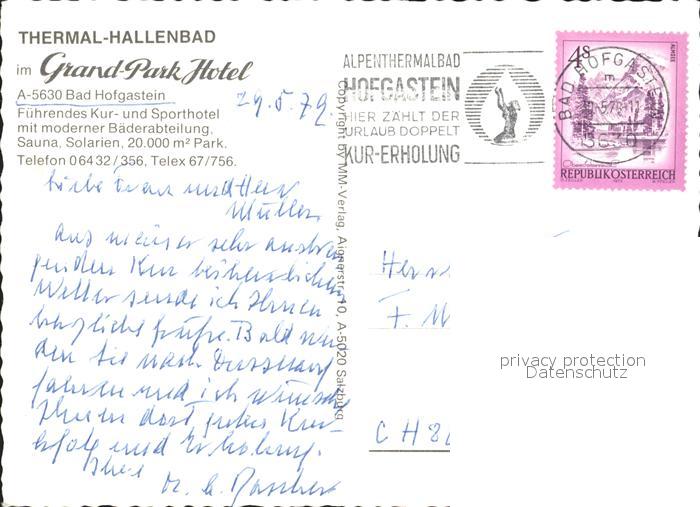 THERMAL-HALLENBAD
im Grand-Park Hotel
A-5630 Bad Hofgastein
Führendes Kur- und Sporthotel
mit moderner Bäderabteilung,
Sauna, Solarien, 20.000 m² Park.
Telefon 06432/356, Telex 67/756.
29.5.79.
ALPENTHERMALBAD
HOFGASTEIN
HIER ZÄHLT DER
URLAUB DOPPELT
KUR-ERHOLUNG
4S
ALMSEE
BAD HOFGASTEIN
5630
REPUBLIK ÖSTERREICH
Copyright by MM-Verlag, Aignerstr. 10, A-5020 Salzburg
Liebe Frau und Herr
Müller,
Aus meiner sehr anstren
genden Kur bei herrlichem
Wetter sende ich Ihnen
herzliche Grüße. Bald wer
den Sie nach
fahren und ich wünsche
Ihnen dort guten Kur-
erfolg und Erholung.
Ihre
Herrn
F. M
CH 8
privacy protection
Datenschutz